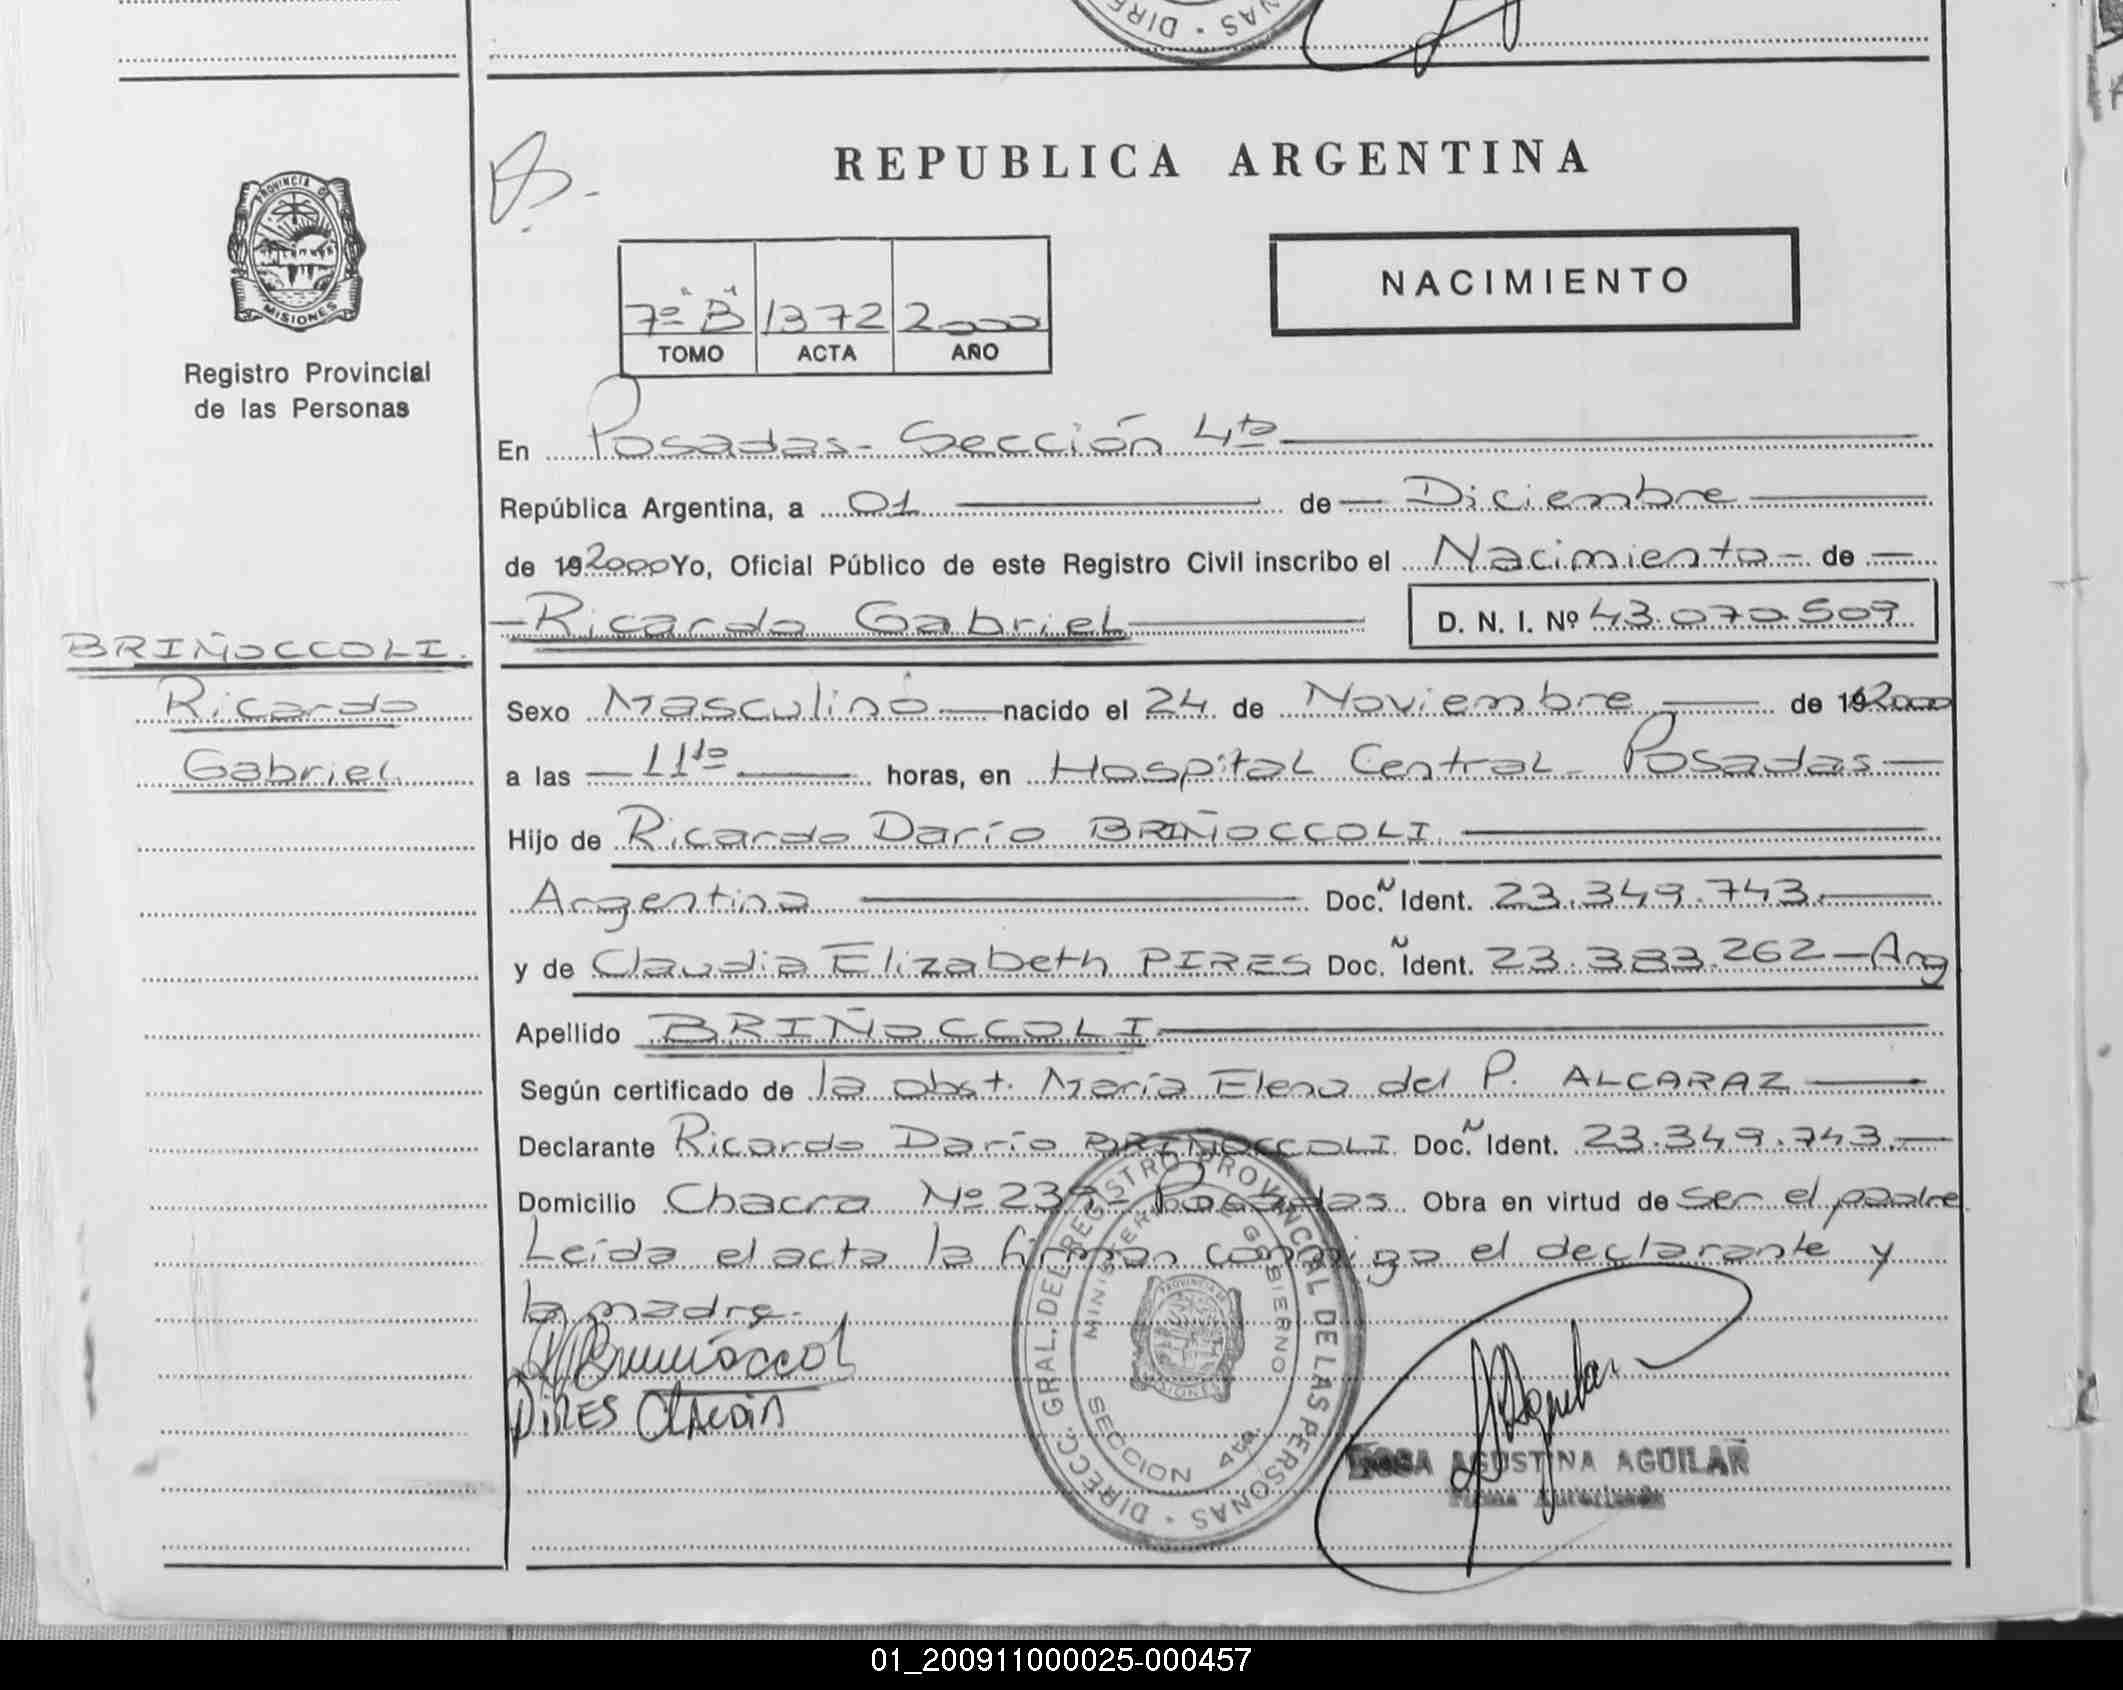 DIRE
NAS
REPUBLICA ARGENTINA
PROVINCIA DE
MISIONES
NACIMIENTO
7º "B" 1372 2000
TOMO ACTA AÑO
Registro Provincial
de las Personas
En Posadas - Sección 4ta
República Argentina, a 01 de Diciembre
de 19 2000 Yo, Oficial Público de este Registro Civil inscribo el Nacimiento de
Ricardo Gabriel D. N. I. Nº 43.070.509
BRIÑOCCOLI.
Ricardo
Gabriel
Sexo Masculino nacido el 24 de Noviembre de 19 2000
a las 11 hs horas, en Hospital Central - Posadas
Hijo de Ricardo Darío BRIÑOCCOLI
Argentina Doc. N Ident. 23.349.743.
y de Claudia Elizabeth PIRES Doc. N Ident. 23.383.262 - Arg
Apellido BRIÑOCCOLI
Según certificado de la obst. María Elena del P. ALCARAZ
Declarante Ricardo Darío BRIÑOCCOLI Doc. N Ident. 23.349.743.
Domicilio Chacra Nº 239 - Posadas Obra en virtud de ser el padre
Leída el acta la firman conmigo el declarante y
la madre.
PIRES CLAUDIA
DIRECC. GRAL. DEL REGISTRO PROVINCIAL DE LAS PERSONAS
MINISTERIO DE GOBIERNO
SECCION 4ta.
PROVINCIA DE
MISIONES
ROSA AGUSTINA AGUILAR
Firma Autorizada
01_200911000025-000457